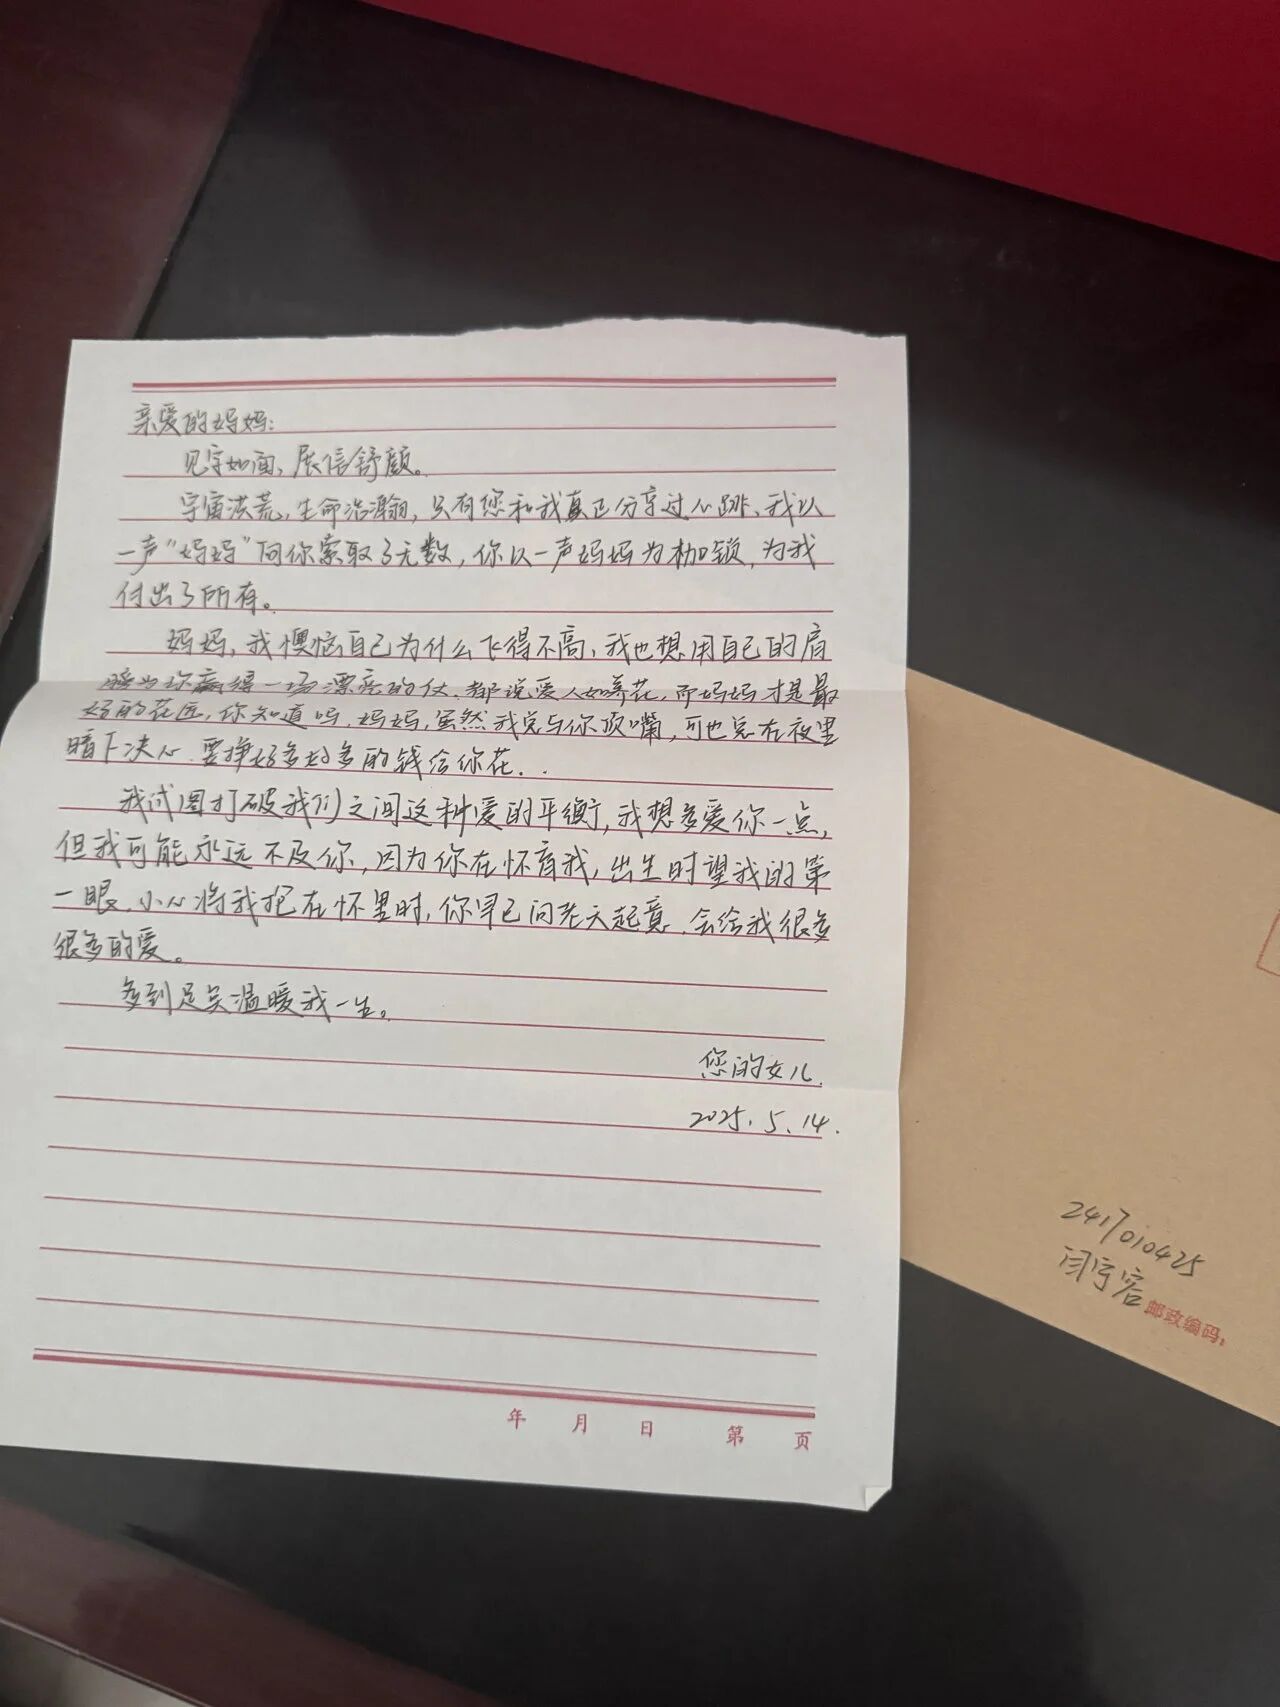 亲爱的妈妈:
见字如面，展信舒颜。
宇宙洪荒，生命浩瀚，只有您和我真正分享过心跳、我以
一声“妈妈”向你索取了无数，你以一声妈妈为枷锁，为我
付出了所有。
妈妈，我懊恼自己为什么飞得不高，我也想用自己的肩
膀为你赢得一场漂亮的仗、都说爱人如养花，而妈妈才是最
好的花匠，你知道吗，妈妈，虽然我总与你顶嘴，可也总在夜里
暗下决心、要挣好多好多的钱给你花..
我试图打破我们之间这种爱的平衡，我想多爱你一点，
但我可能永远不及你、因为你在怀育我，出生时望我的第
一眼、小心将我抱在怀里时，你早已向老天起意、会给我很多
很多的爱。
多到足矣温暖我一生。
您的女儿.
2025.5.14.
年 月 日 第 页
2417010425
闫宇容
邮政编码: